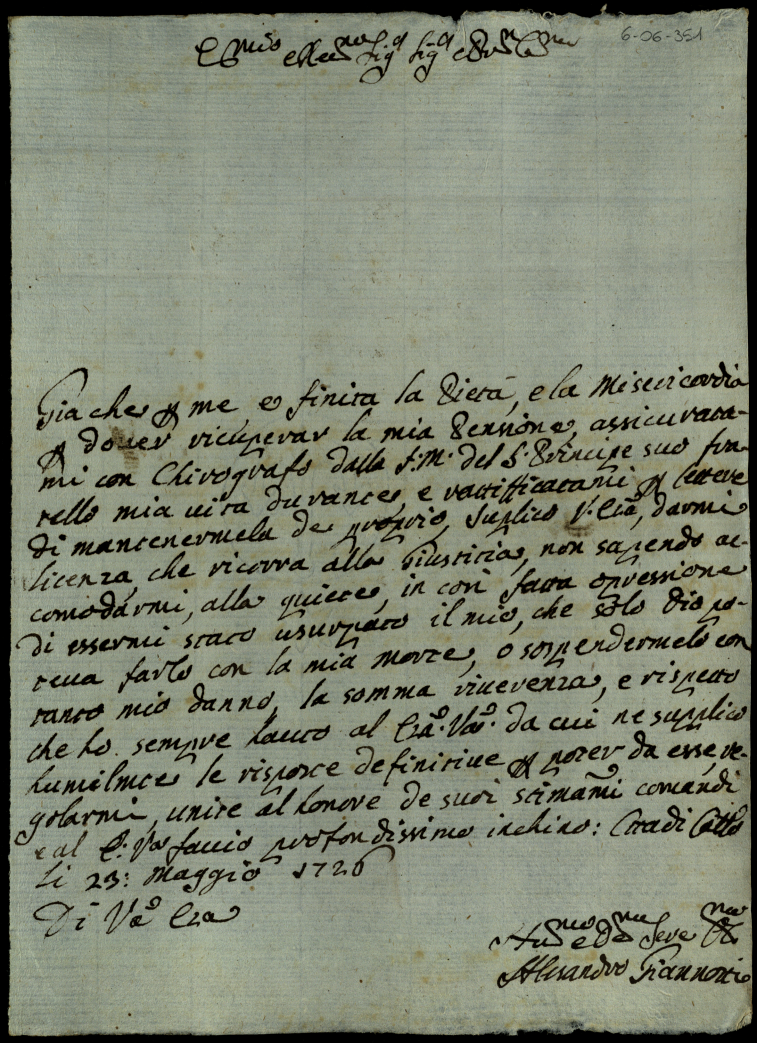 6-06-351
Ecc.mo Sig.r Sig.r
Gia che p me è finita la Pietà, e la Misericordia
p dover ricuperar la mia Pensione, assicurata-
mi con Chirografo dalla f. M. del S. Principe suo fra-
tello mia vita durante, e rattifficatami p lettere
di mantenermela de proprio, suplico V. Ecc.a, darmi
licenza, che ricorra alla Giustitia, non sapendo ac-
comodarmi, alla quiete, in così fatta opressione
di essermi stato usurpato il mio, che solo Dio po-
teva farlo con la mia morte, o sospendermelo con
tanto mio danno, la somma riverenza, e rispetto
che ho sempre hauto al Ecc.a V.a da cui ne supplico
humilmte le risposte definitive p poter da esse, re-
golarmi, unite al honore de suoi stimami comandi
e al E. V.a faccio profondissimo inchino: Cittadi Castllo
li 23: Maggio 1726
Di V.a Ecc.a
Hu.mo e De.mo Serve
Alesandro Giannotti